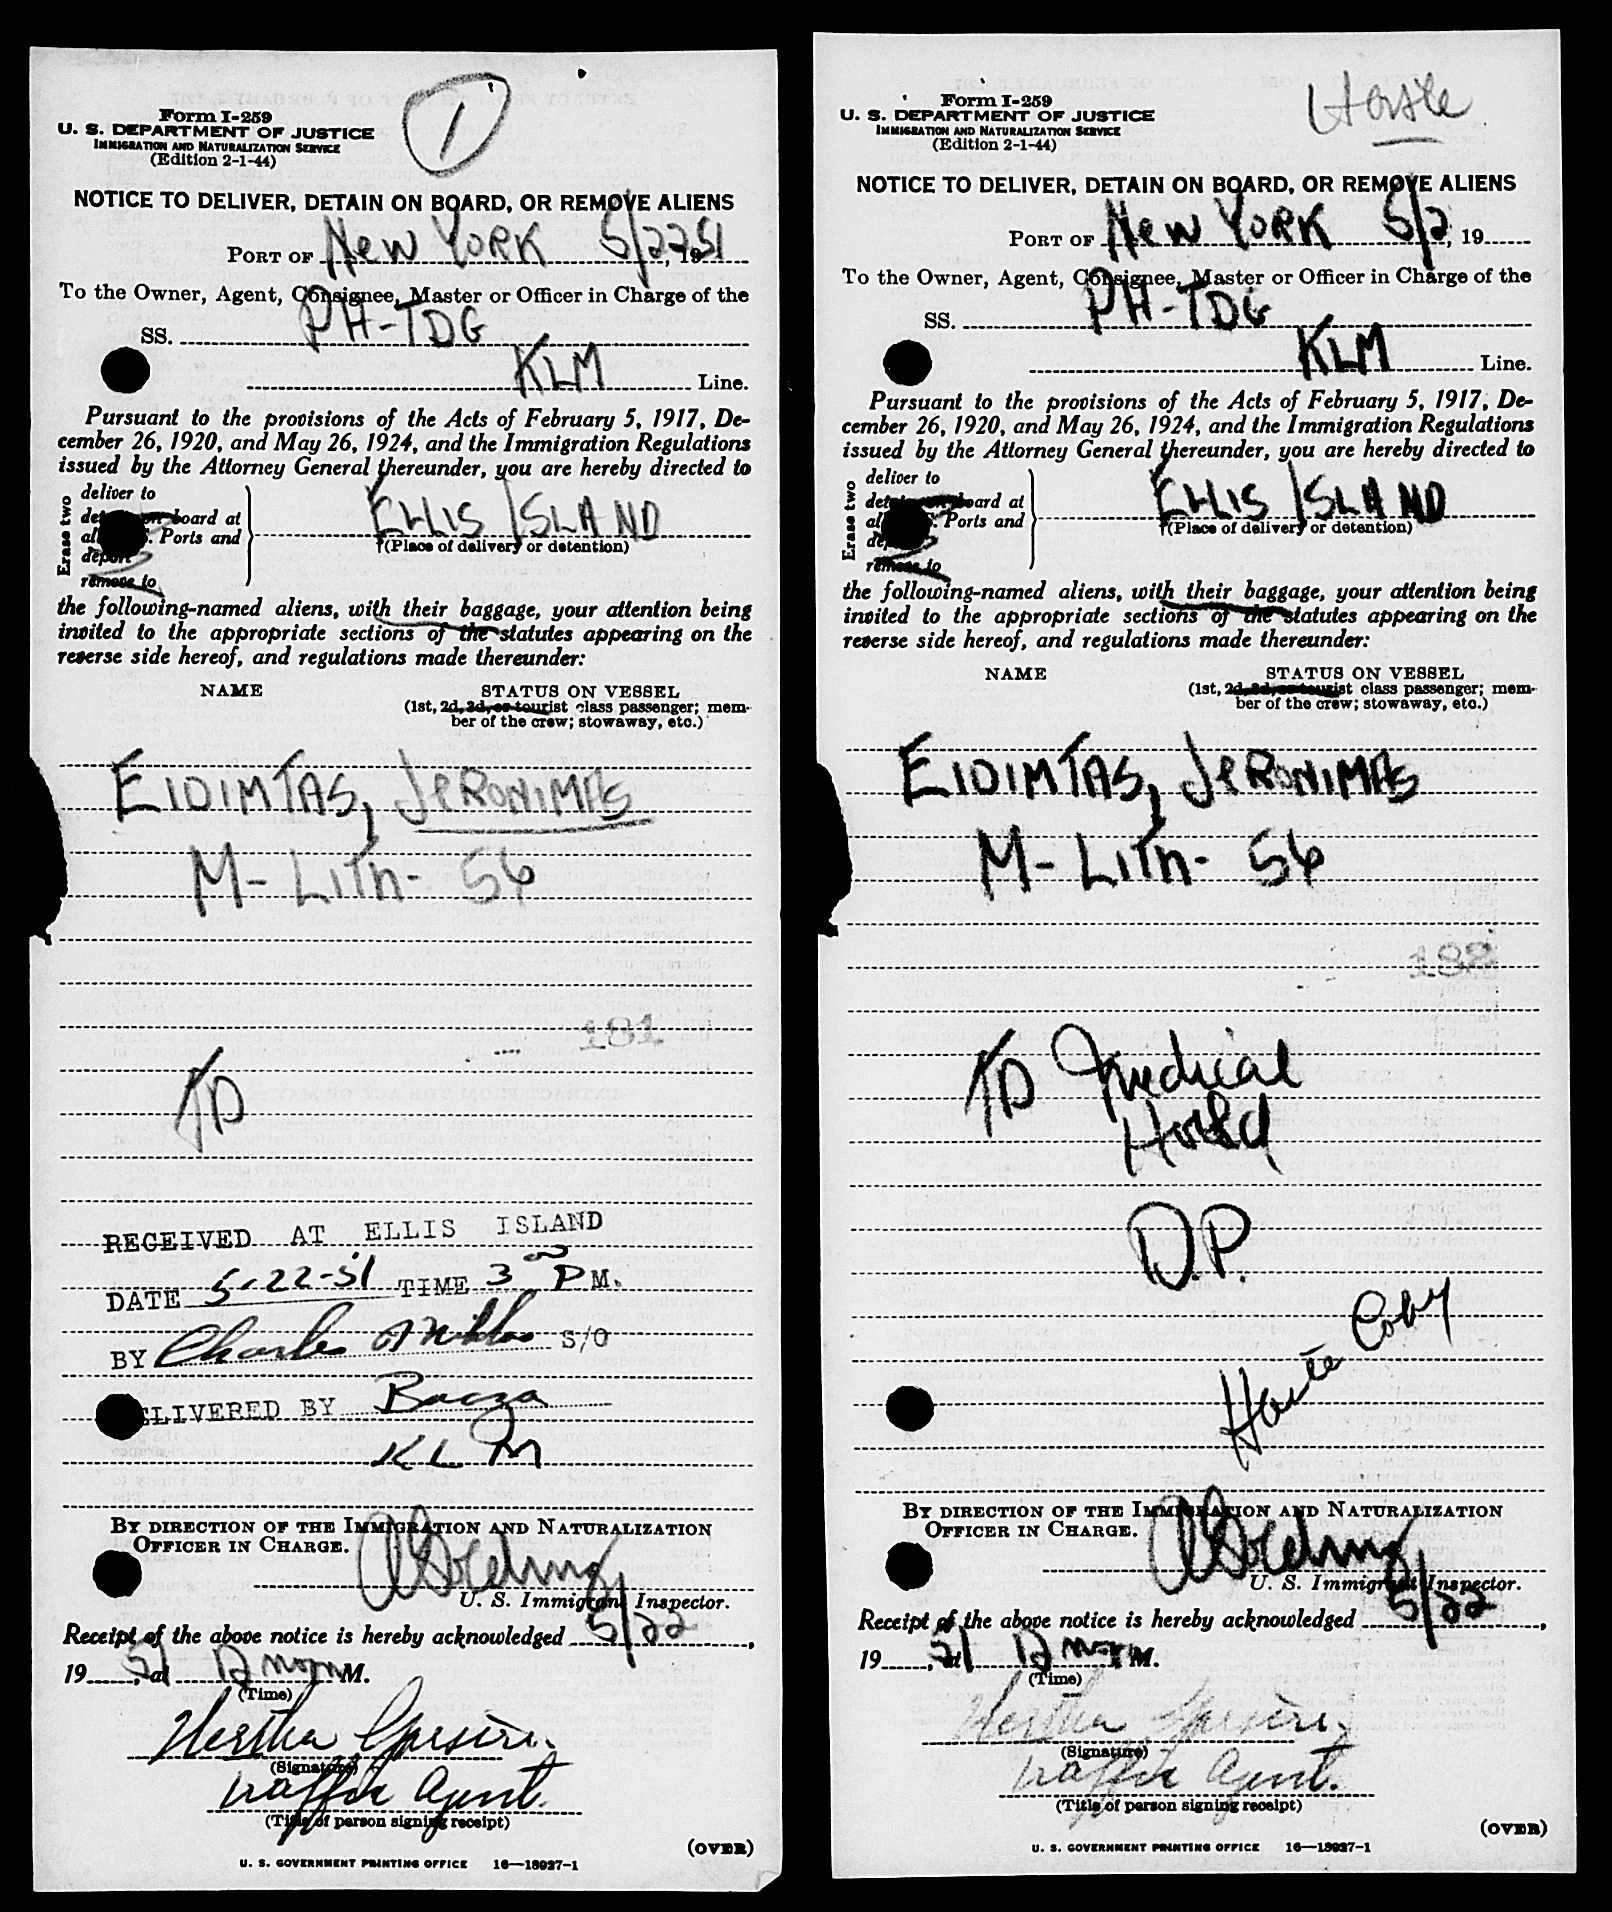 1
Form I-259
U. S. DEPARTMENT OF JUSTICE
IMMIGRATION AND NATURALIZATION SERVICE
(Edition 2-1-44)
NOTICE TO DELIVER, DETAIN ON BOARD, OR REMOVE ALIENS
PORT OF New YORK 5/22, 1951
To the Owner, Agent, Consignee, Master or Officer in Charge of the
SS. PH-TDG
KLM Line.
Pursuant to the provisions of the Acts of February 5, 1917, De-
cember 26, 1920, and May 26, 1924, and the Immigration Regulations
issued by the Attorney General thereunder, you are hereby directed to
Erase two
deliver to
board at
Ports and
deport
remove to
ELLIS ISLAND
(Place of delivery or detention)
the following-named aliens, with their baggage, your attention being
invited to the appropriate sections of the statutes appearing on the
reverse side hereof, and regulations made thereunder:
NAME STATUS ON VESSEL
(1st, 2d, 3d, or tourist class passenger; mem-
ber of the crew; stowaway, etc.)
EIDIMTAS, JERONIMAS
M- LITH- 56
181
TD
RECEIVED AT ELLIS ISLAND
DATE 5-22-51 TIME 3 P M.
BY Charles S/O
DELIVERED BY
KLM
BY DIRECTION OF THE IMMIGRATION AND NATURALIZATION
OFFICER IN CHARGE.
U. S. Immigrant Inspector.
Receipt of the above notice is hereby acknowledged 5/22,
1951, at 12 noon M.
(Time)
Hertha
(Signature)
Traffic Agent.
(Title of person signing receipt)
(OVER)
U. S. GOVERNMENT PRINTING OFFICE 16—18927-1
Form I-259
U. S. DEPARTMENT OF JUSTICE
IMMIGRATION AND NATURALIZATION SERVICE
(Edition 2-1-44)
NOTICE TO DELIVER, DETAIN ON BOARD, OR REMOVE ALIENS
PORT OF New YORK 5/2, 19
To the Owner, Agent, Consignee, Master or Officer in Charge of the
SS. PH-TDG
KLM Line.
Pursuant to the provisions of the Acts of February 5, 1917, De-
cember 26, 1920, and May 26, 1924, and the Immigration Regulations
issued by the Attorney General thereunder, you are hereby directed to
Erase two
deliver to
board at
Ports and
remove to
ELLIS ISLAND
(Place of delivery or detention)
the following-named aliens, with their baggage, your attention being
invited to the appropriate sections of the statutes appearing on the
reverse side hereof, and regulations made thereunder:
NAME STATUS ON VESSEL
(1st, 2d, 3d, or tourist class passenger; mem-
ber of the crew; stowaway, etc.)
EIDIMTAS, JERONIMAS
M- LITH- 56
TD Medical
Hold
D.P.
Copy
BY DIRECTION OF THE IMMIGRATION AND NATURALIZATION
OFFICER IN CHARGE.
U. S. Immigrant Inspector.
Receipt of the above notice is hereby acknowledged 5/22,
1951, at 12 noon M.
(Time)
Hertha
(Signature)
Traffic Agent.
(Title of person signing receipt)
(OVER)
U. S. GOVERNMENT PRINTING OFFICE 16—18927-1